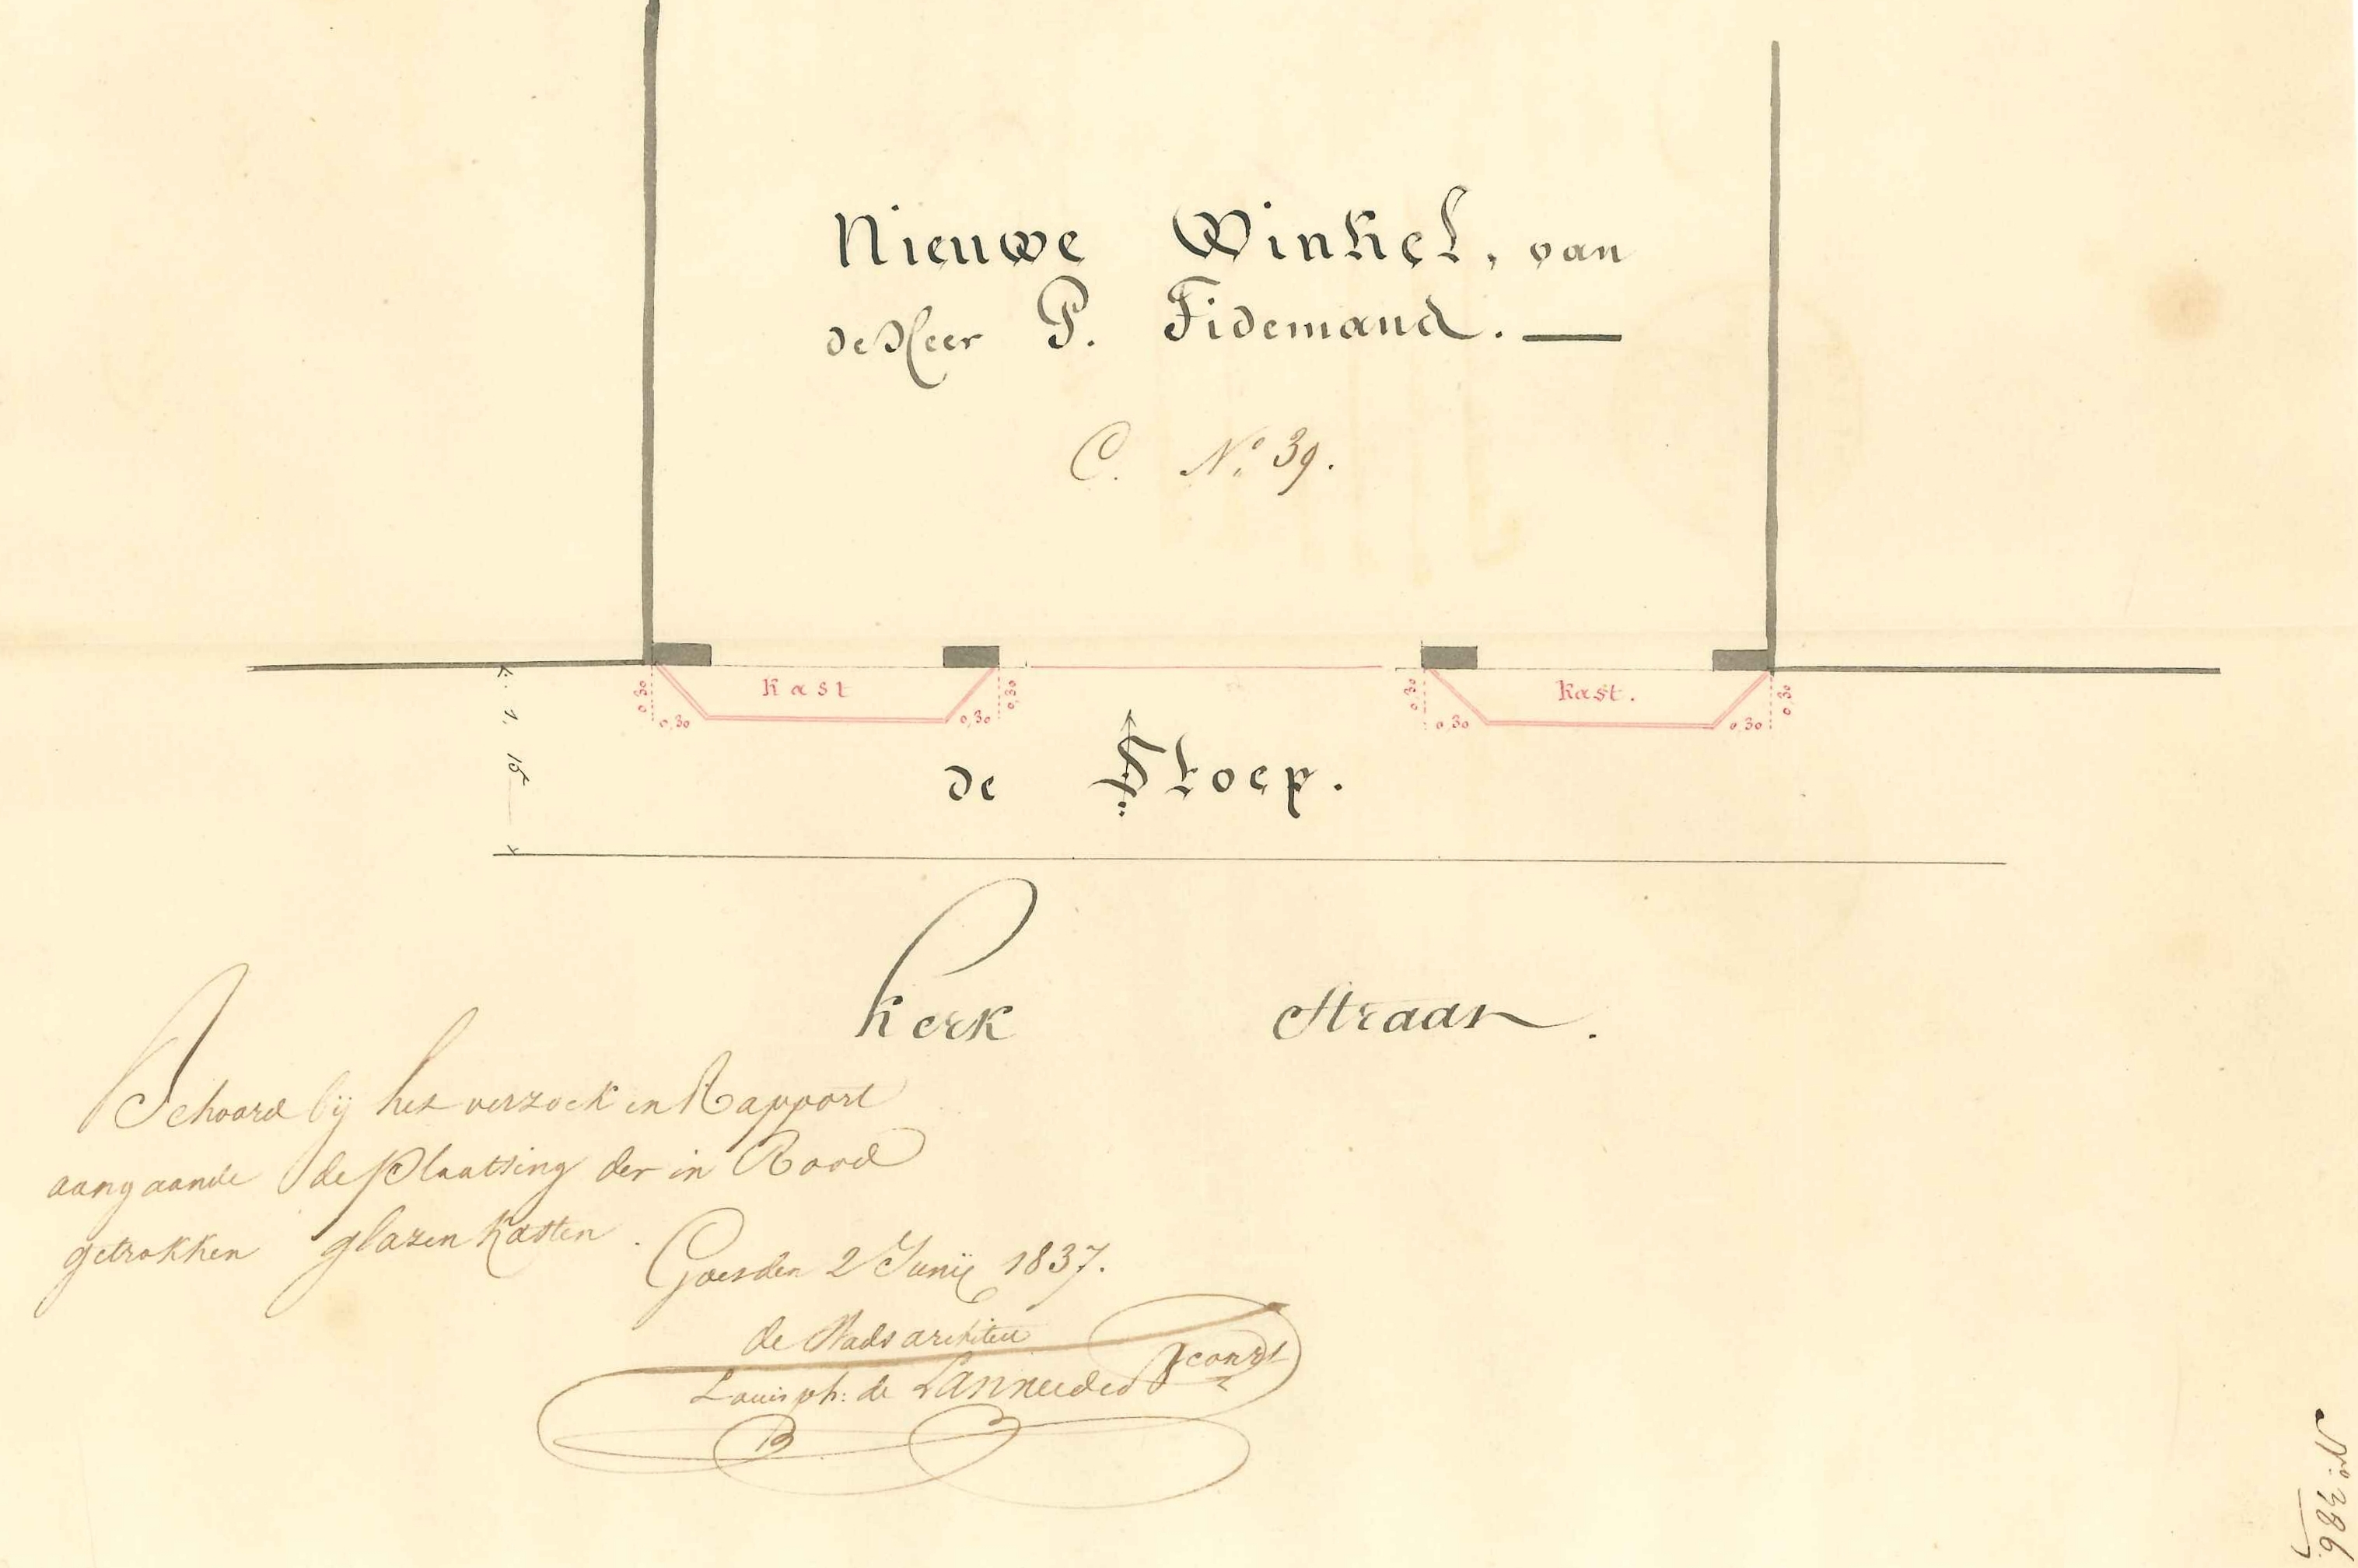 Nieuwe Winkel, van
de Heer P. Fidemand.
C. No. 39.
Kast
Kast.
0,30
0,30
0,30
0,30
0,30
0,30
0,30
0,30
1, 15
de Stoep.
Kerk Straat.
Behoord bij het verzoek en Rapport
aangaande de Plaatsing der in Rood
getrokken glazen Kasten.
Goes den 2 Junij 1837.
de Stads architect
Louis ph: de
No. 386.